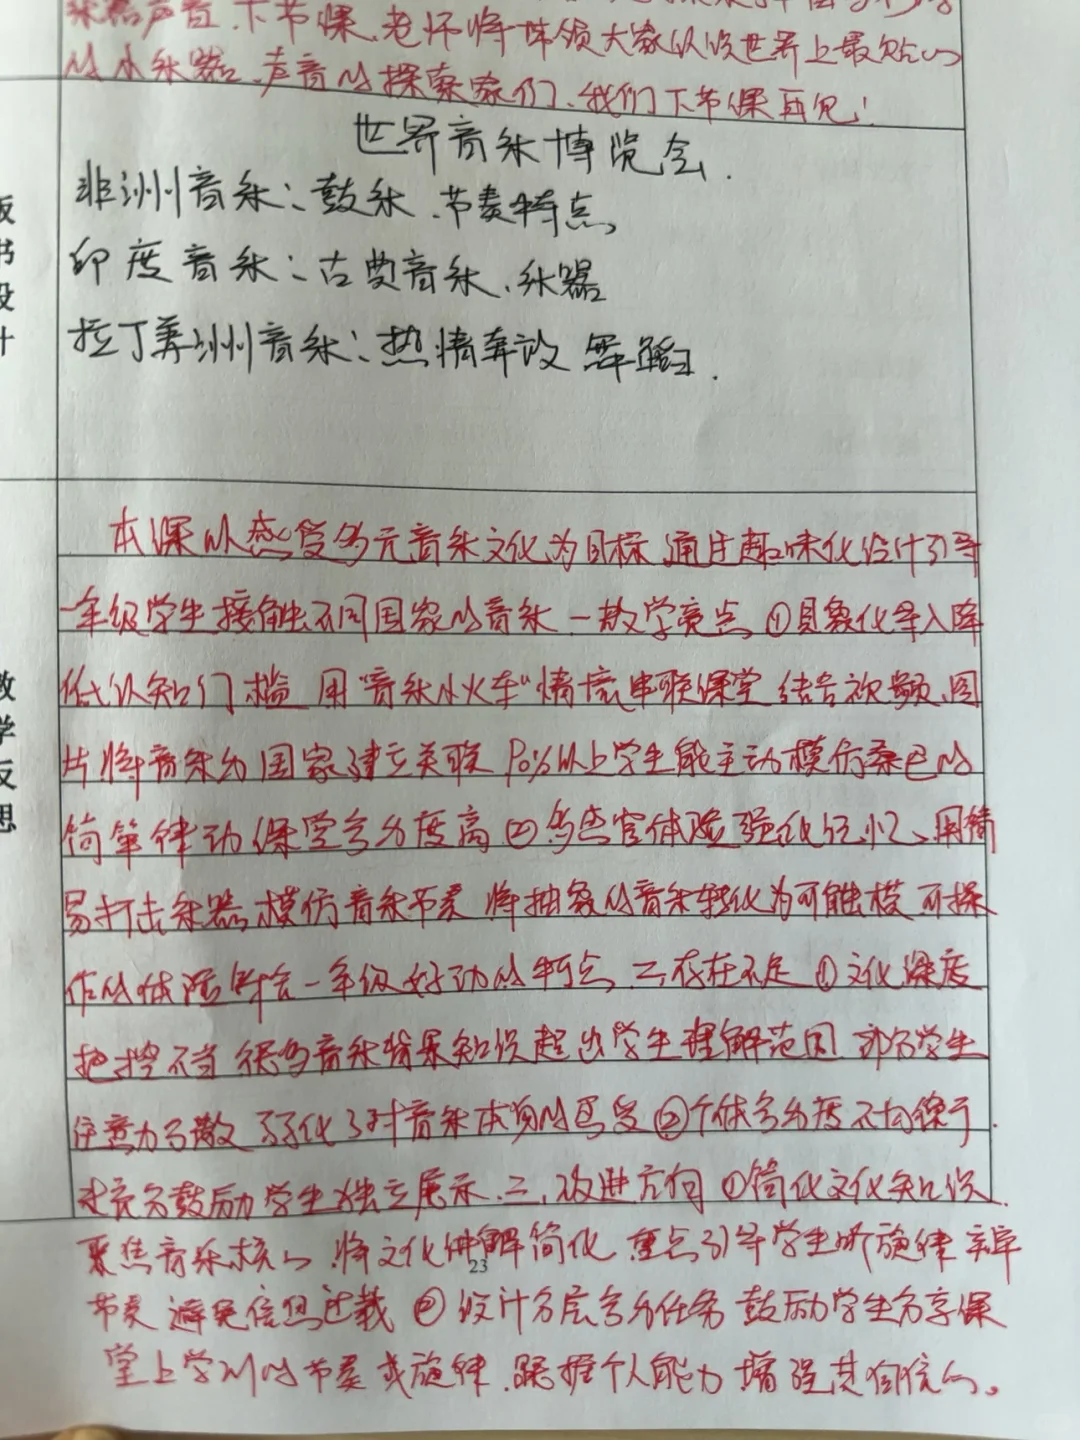 乐器声音、下节课、老师将带领大家认识世界上最
的小乐器、声音的探索家们、我们下节课再见!
世界音乐博览会.
板书设计
非洲音乐:鼓乐、节奏特点
印度音乐:古典音乐、乐器
拉丁美洲音乐:热情奔放 舞蹈.
教学反思
本课以感受多元音乐文化为目标 通过趣味化设计引导
一年级学生接触不同国家的音乐 一教学亮点 ①具象化导入降
低认知门槛 用“音乐小火车”情境串联课堂 结合视频、图
片将音乐与国家建立关联 90%以上学生能主动模仿桑巴的
简单律动 课堂参与度高 ②多感官体验强化记忆、用简
易打击乐器模仿音乐节奏 将抽象的音乐转化为可触摸 可操
作的体验 符合一年级好动的特点 二存在不足 ①文化深度
把控不当 很多音乐背景知识超出学生理解范围 部分学生
注意力分散 弱化了对音乐本身的感受 ②个体参与度不均衡 于
鼓励学生独立展示. 三、改进方向 ①简化文化知识
聚焦音乐核心 将文化讲解简化 重点引导学生听旋律 辨
23
节奏 避免信息过载 ② 设计分层参与任务 鼓励学生分享课
堂上学到的节奏或旋律、锻炼个人能力 增强其自信心。